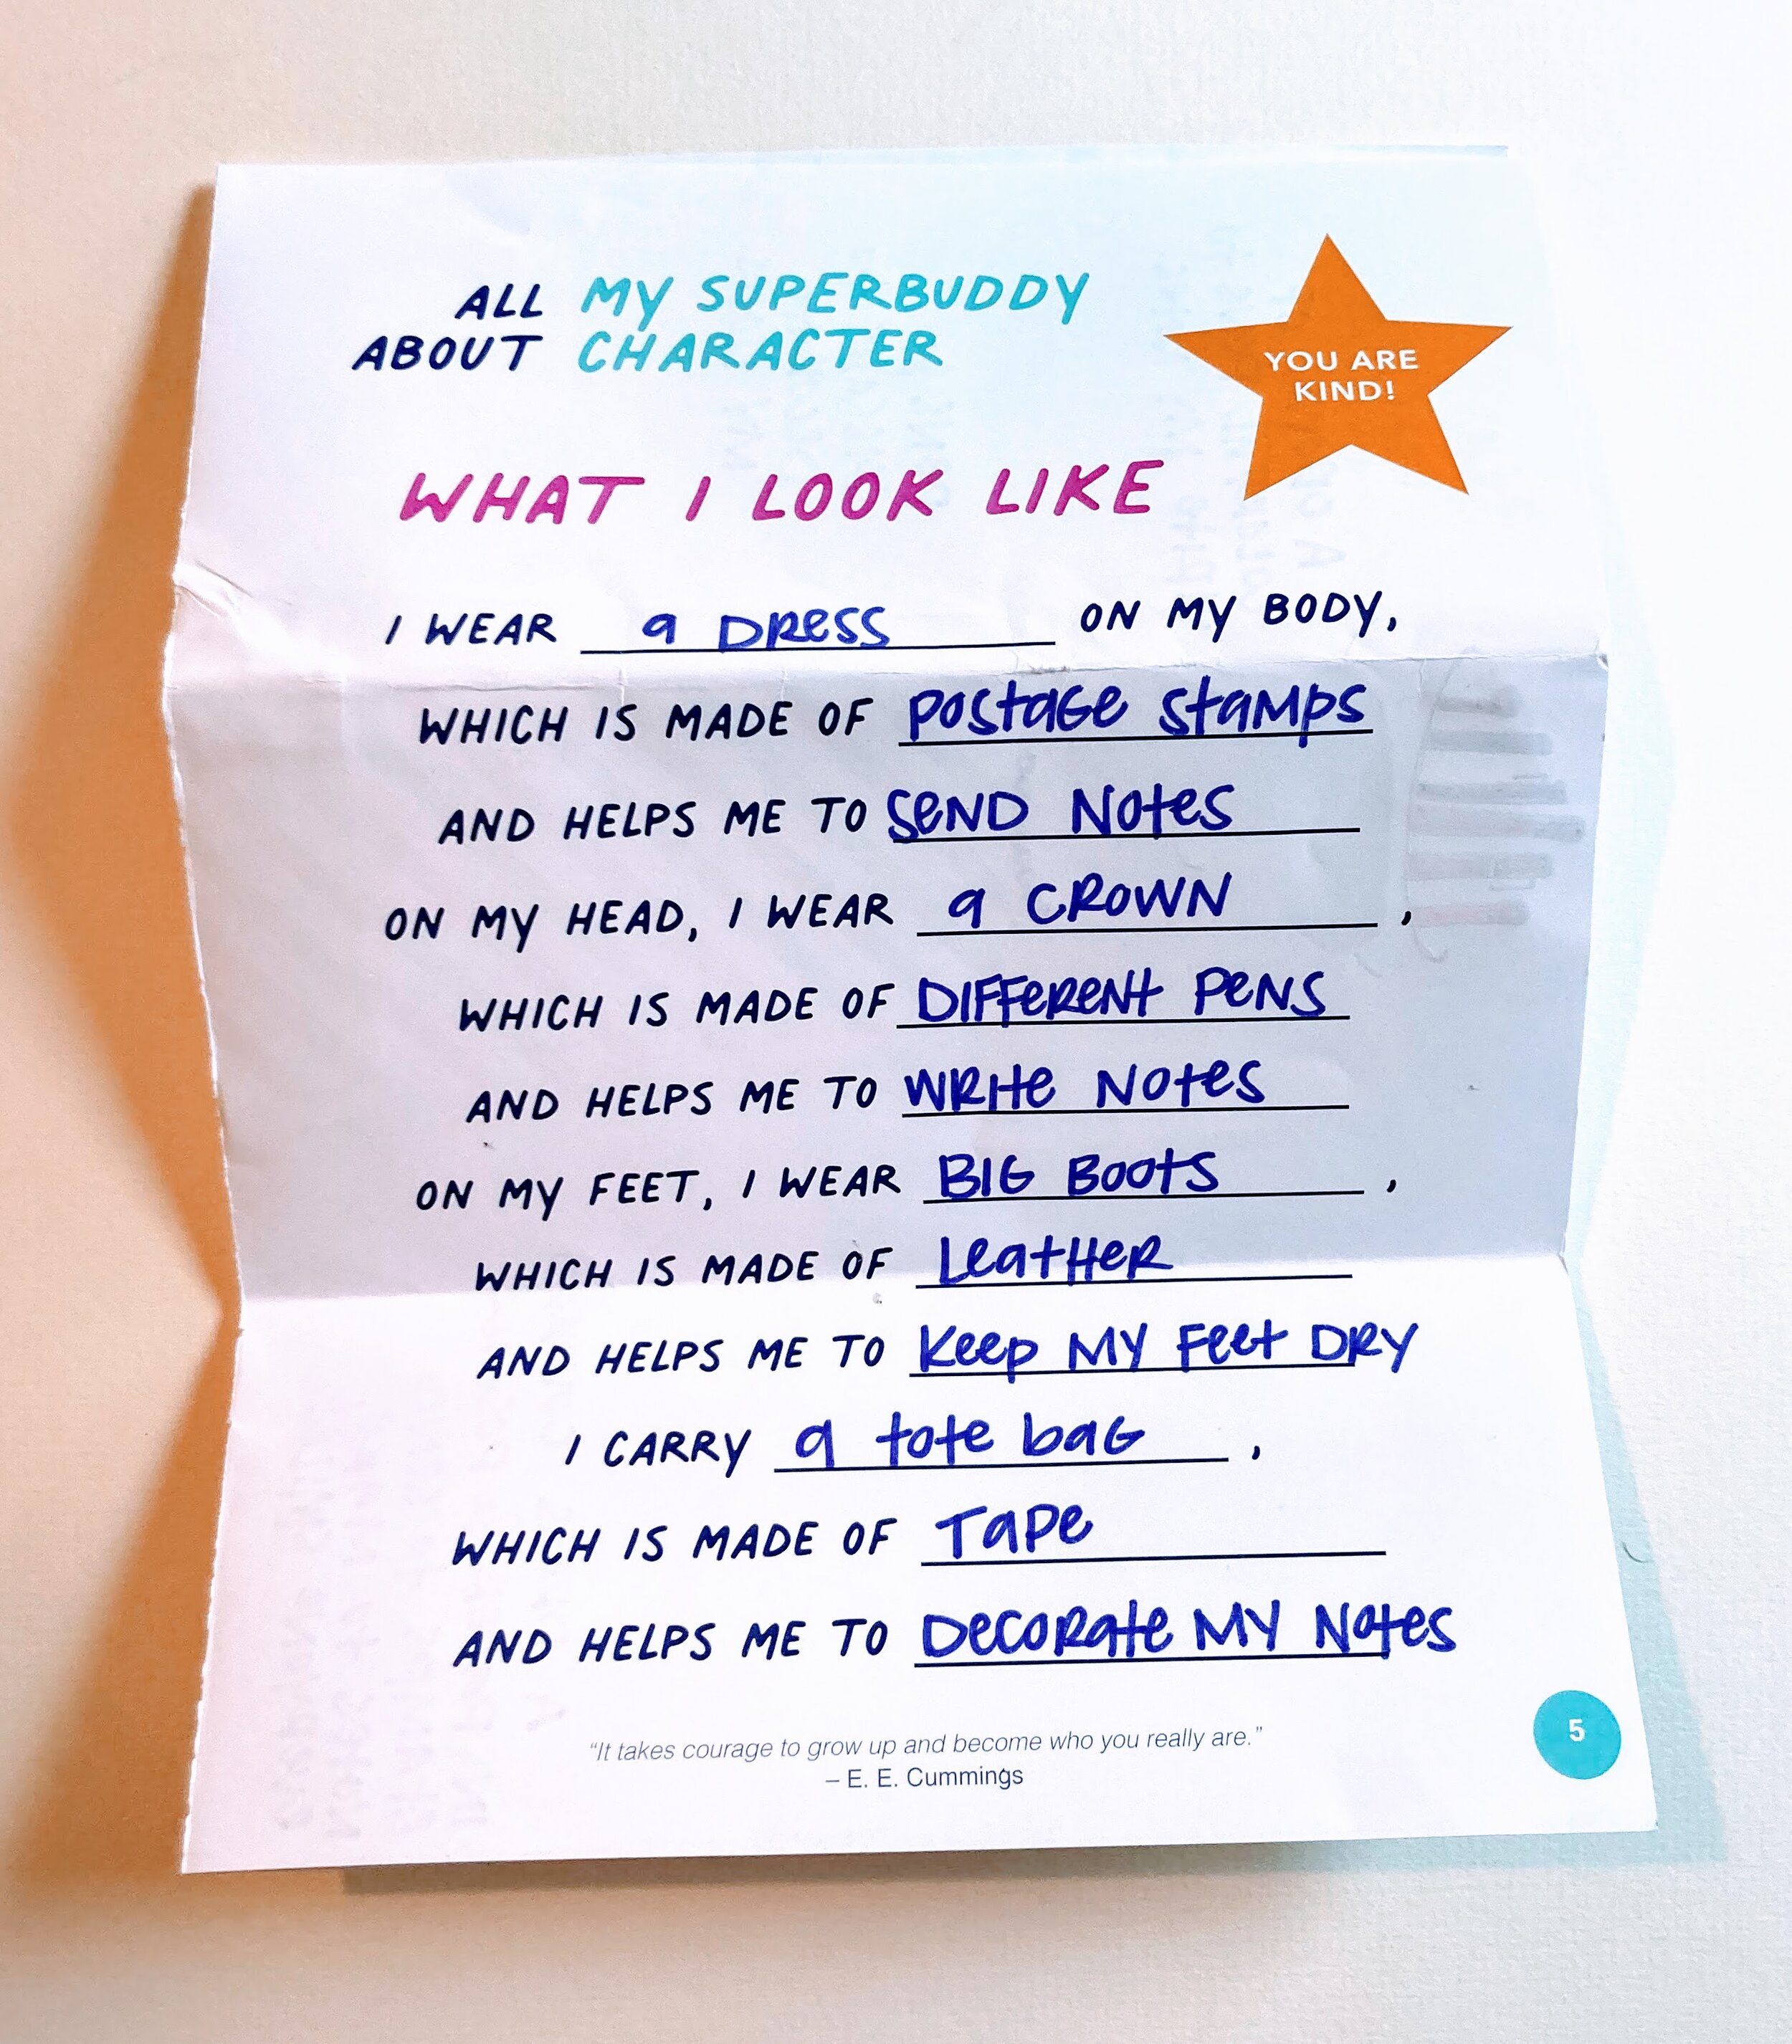 ALL MY SUPERBUDDY
ABOUT CHARACTER
YOU ARE
KIND!
WHAT I LOOK LIKE
I WEAR a DRess ON MY BODY,
WHICH IS MADE OF postaGe staMps
AND HELPS ME TO SeND Notes
ON MY HEAD, I WEAR a CRoWN,
WHICH IS MADE OF DIFFeReNt PeNS
AND HELPS ME TO WRIte Notes
ON MY FEET, I WEAR BIG Boots,
WHICH IS MADE OF LeatHeR
AND HELPS ME TO Keep MY Feet DRY
I CARRY a tote baG,
WHICH IS MADE OF Tape
AND HELPS ME TO DecoRate MY Notes
“It takes courage to grow up and become who you really are.”
– E. E. Cummings
5